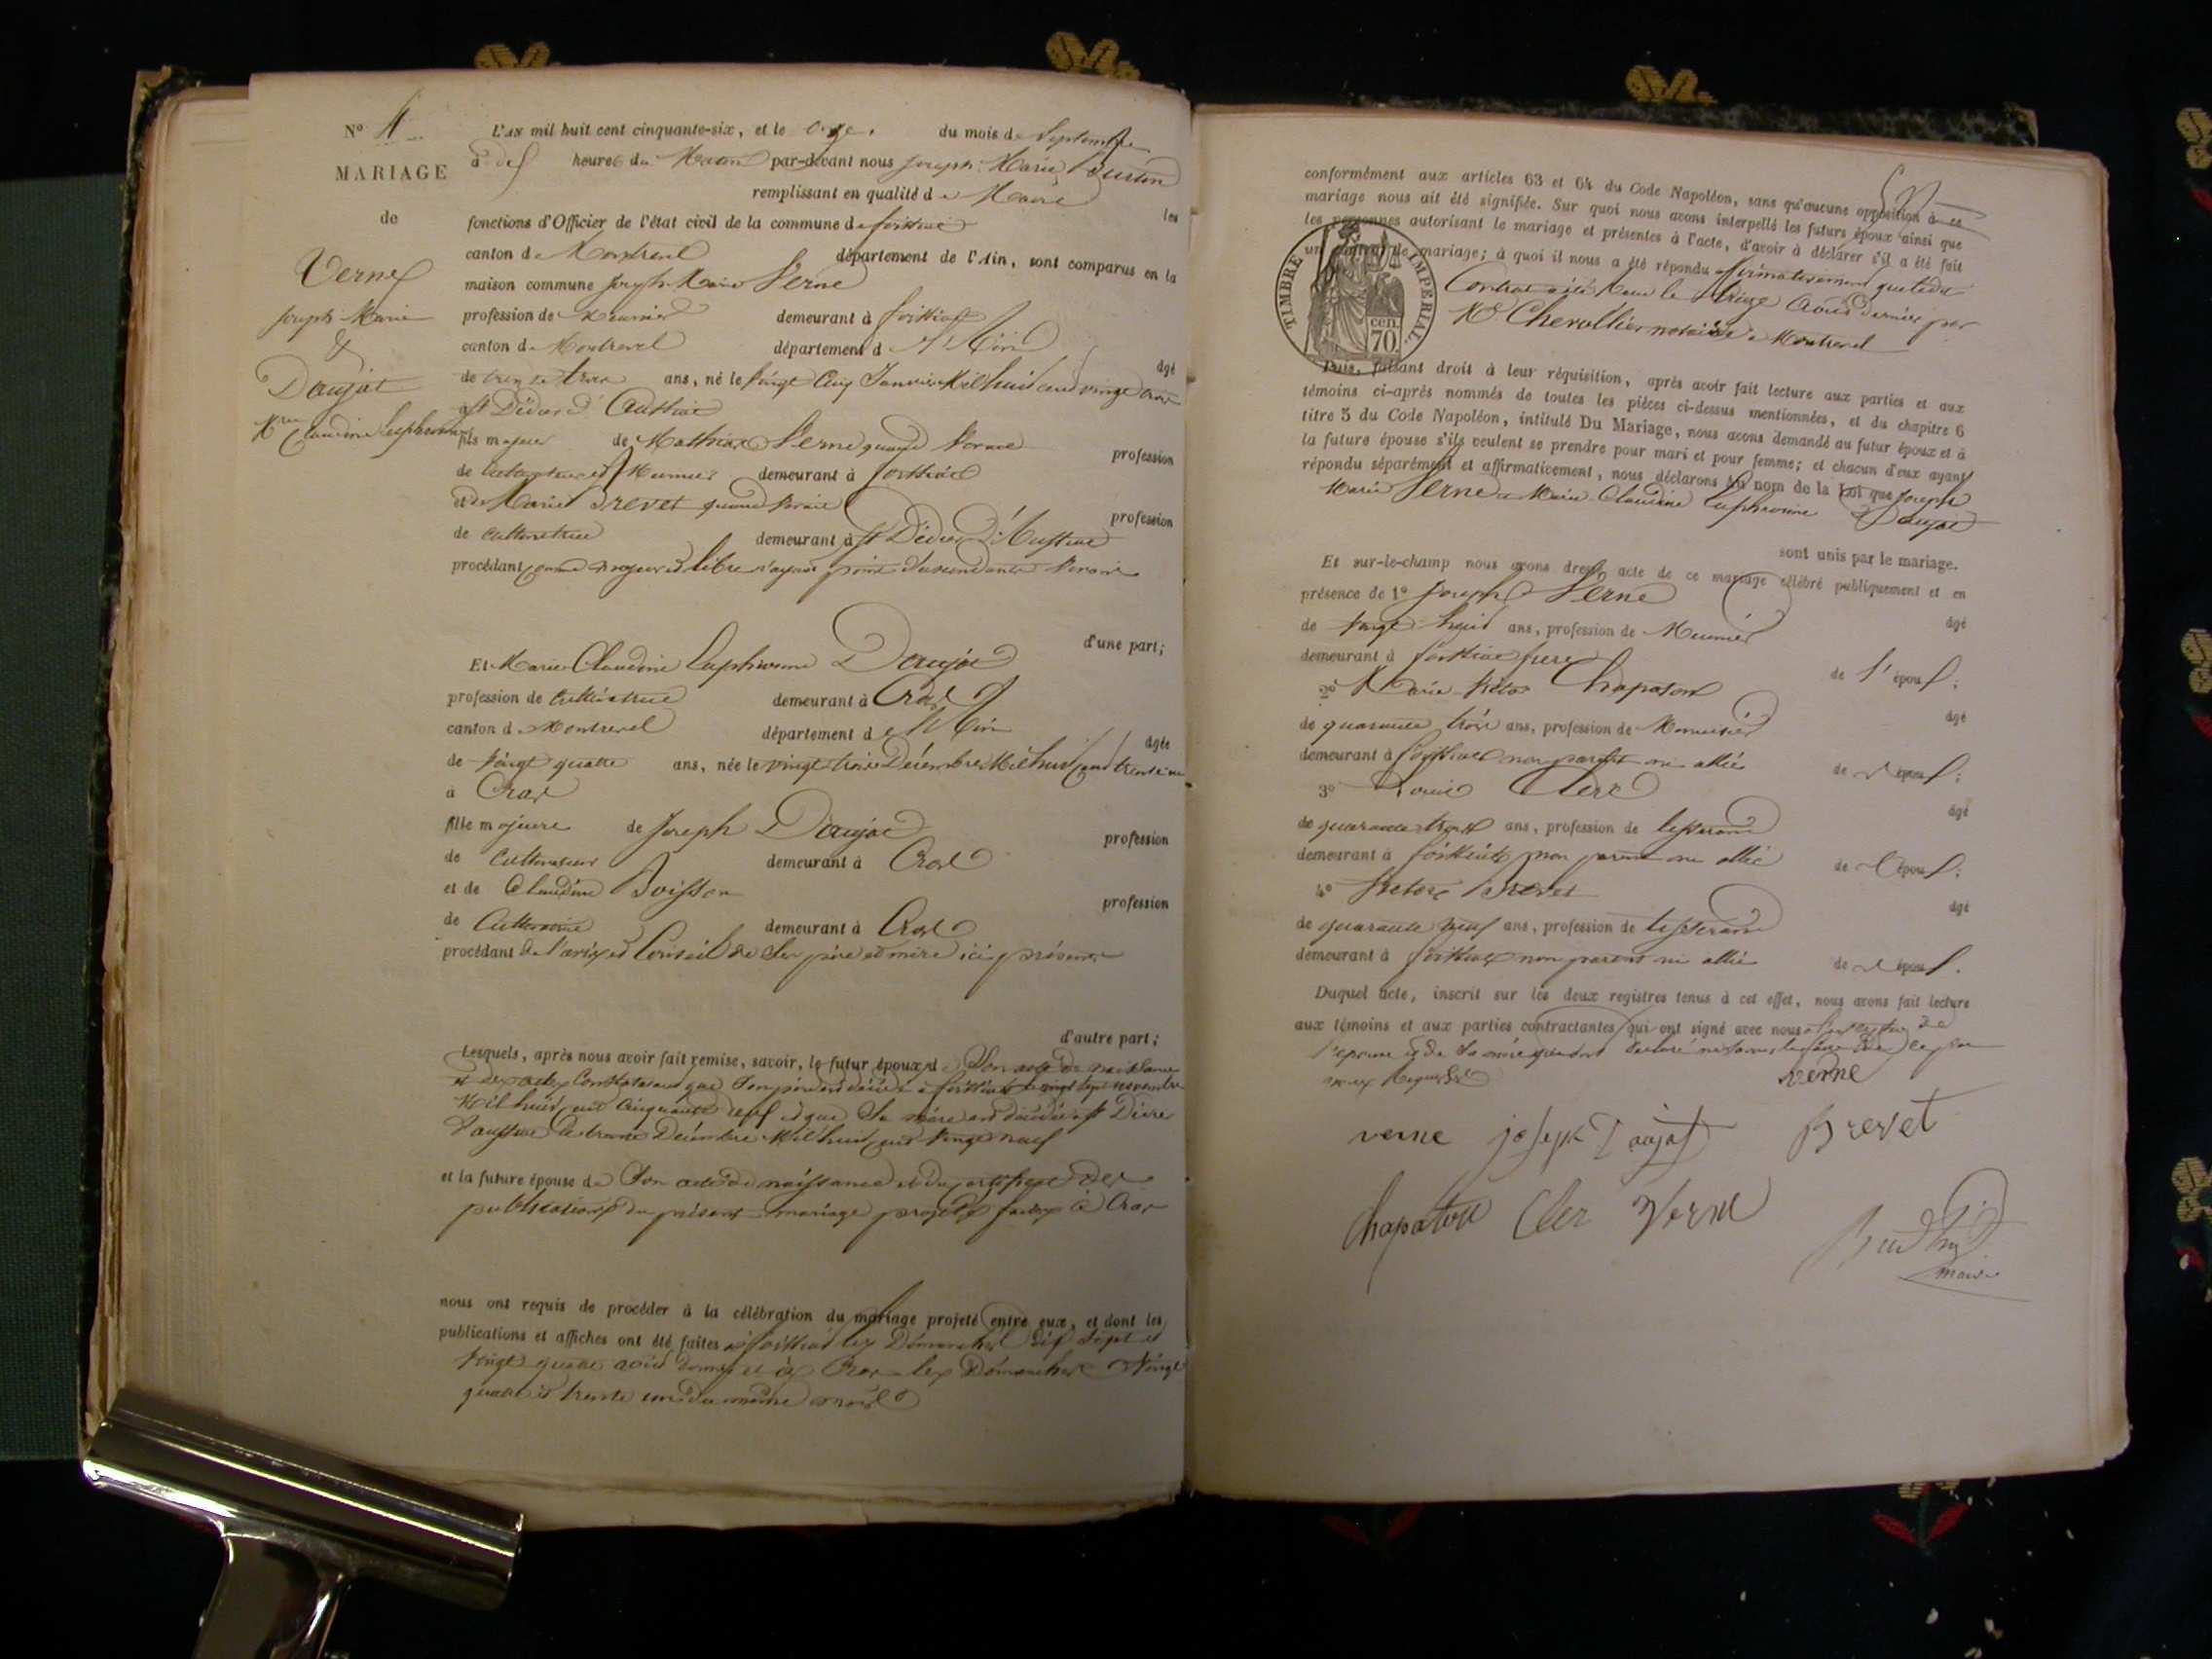 N° 4
MARIAGE
de
Verne
Joseph Marie
&
Daujat
Marie Claudine Euphrosine
L'AN mil huit cent cinquante-six, et le onze du mois de Septembre
à dix heures du Matin par-devant nous Joseph Marie
remplissant en qualité de Maire les
fonctions d'Officier de l'état civil de la commune de foissiat
canton de Montrevel département de l'Ain, sont comparus en la
maison commune Joseph Marie Verne
profession de Meunier demeurant à foissiat
canton de Montrevel département de l'Ain âgé
de trente trois ans, né le vingt cinq Janvier Mil huit cent vingt trois
à St Didier d'Aussiat
fils majeur de Mathieu Verne quand vivait profession
de cultivateur et Meunier demeurant à foissiat
et de Marie Brevet quand vivait profession
de cultivatrice demeurant à St Didier d'Aussiat
procédant comme majeur et libre n'ayant point d'ascendants
d'une part;
Et Marie Claudine Euphrosine Daujat
profession de cultivatrice demeurant à Cras
canton de Montrevel département de l'Ain âgée
de vingt quatre ans, née le vingt trois Décembre Mil huit cent trente un
à Cras
fille majeure de Joseph Daujat profession
de cultivateur demeurant à Cras
et de Claudine Buisson profession
de cultivatrice demeurant à Cras
procédant de l'avis et conseil de ses père et mère ici présents
d'autre part;
Lesquels, après nous avoir fait remise, savoir, le futur époux de Son acte de naissance
et des actes constatant que son père est décédé à foissiat le vingt sept novembre
Mil huit cent cinquante et que Sa mère est décédée à St Didier
d'aussiat le trente Décembre Mil huit cent vingt neuf
et la future épouse de Son acte de naissance et du certificat des
publications du présent mariage projeté faites à Cras
nous ont requis de procéder à la célébration du mariage projeté entre eux, et dont les
publications et affiches ont été faites à foissiat les Dimanches dix sept et
vingt quatre août dernier et à Cras les Dimanches vingt
quatre et trente un du même mois
conformément aux articles 63 et 64 du Code Napoléon, sans qu'aucune opposition à ce
mariage nous ait été signifiée. Sur quoi nous avons interpellé les futurs époux ainsi que
les personnes autorisant le mariage et présentes à l'acte, d'avoir à déclarer s'il a été fait
un contrat de mariage; à quoi il nous a été répondu affirmativement que ledit
Contrat a été reçu le Août dernier par
Me Chevallier notaire à Montrevel
TIMBRE IMPÉRIAL.
70 cen.
Puis, faisant droit à leur réquisition, après avoir fait lecture aux parties et aux
témoins ci-après nommés de toutes les pièces ci-dessus mentionnées, et du chapitre 6
titre 5 du Code Napoléon, intitulé Du Mariage, nous avons demandé au futur époux et à
la future épouse s'ils veulent se prendre pour mari et pour femme; et chacun d'eux ayant
répondu séparément et affirmativement, nous déclarons au nom de la Loi que Joseph
Marie Verne et Marie Claudine Euphrosine Daujat
sont unis par le mariage.
Et sur-le-champ nous avons dressé acte de ce mariage célébré publiquement et en
présence de 1° Joseph Verne âgé
de vingt huit ans, profession de Meunier
demeurant à foissiat frere de l'époux;
2° Marie Victor Chapaton âgé
de quarante trois ans, profession de Menuisier
demeurant à foissiat non parent ni allié de l'époux;
3° Louis Clerc âgé
de quarante trois ans, profession de tisserand
demeurant à foissiat non parent ni allié de l'époux;
4° Victor Brevet âgé
de quarante neuf ans, profession de tisserand
demeurant à foissiat non parent ni allié de l'époux.
Duquel acte, inscrit sur les deux registres tenus à cet effet, nous avons fait lecture
aux témoins et aux parties contractantes qui ont signé avec nous
l'épouse et de Sa mère qui ont déclaré ne savoir le faire de ce
requis
verne
verne joseph Daujat Brevet
Chapaton Cler Verne
maire